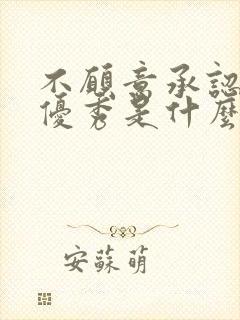 不願意承認
優秀是什麼
安蘇萌